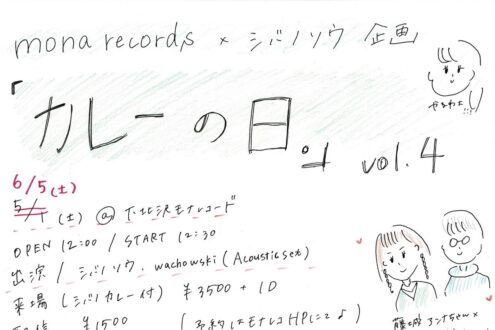 mona records × シバノソウ 企画
「カレーの日。」 vol.4
やるわよ!!
6/5(土)
5/1 (土) @ 下北沢モナレコード
OPEN 12:00 / START 12:30
出演 / シバノソウ. wachowski (Acoustic set)
来場 (シバカレー付) ¥3500 + 1D
¥1500
(予約はモナレコHPにて♪)